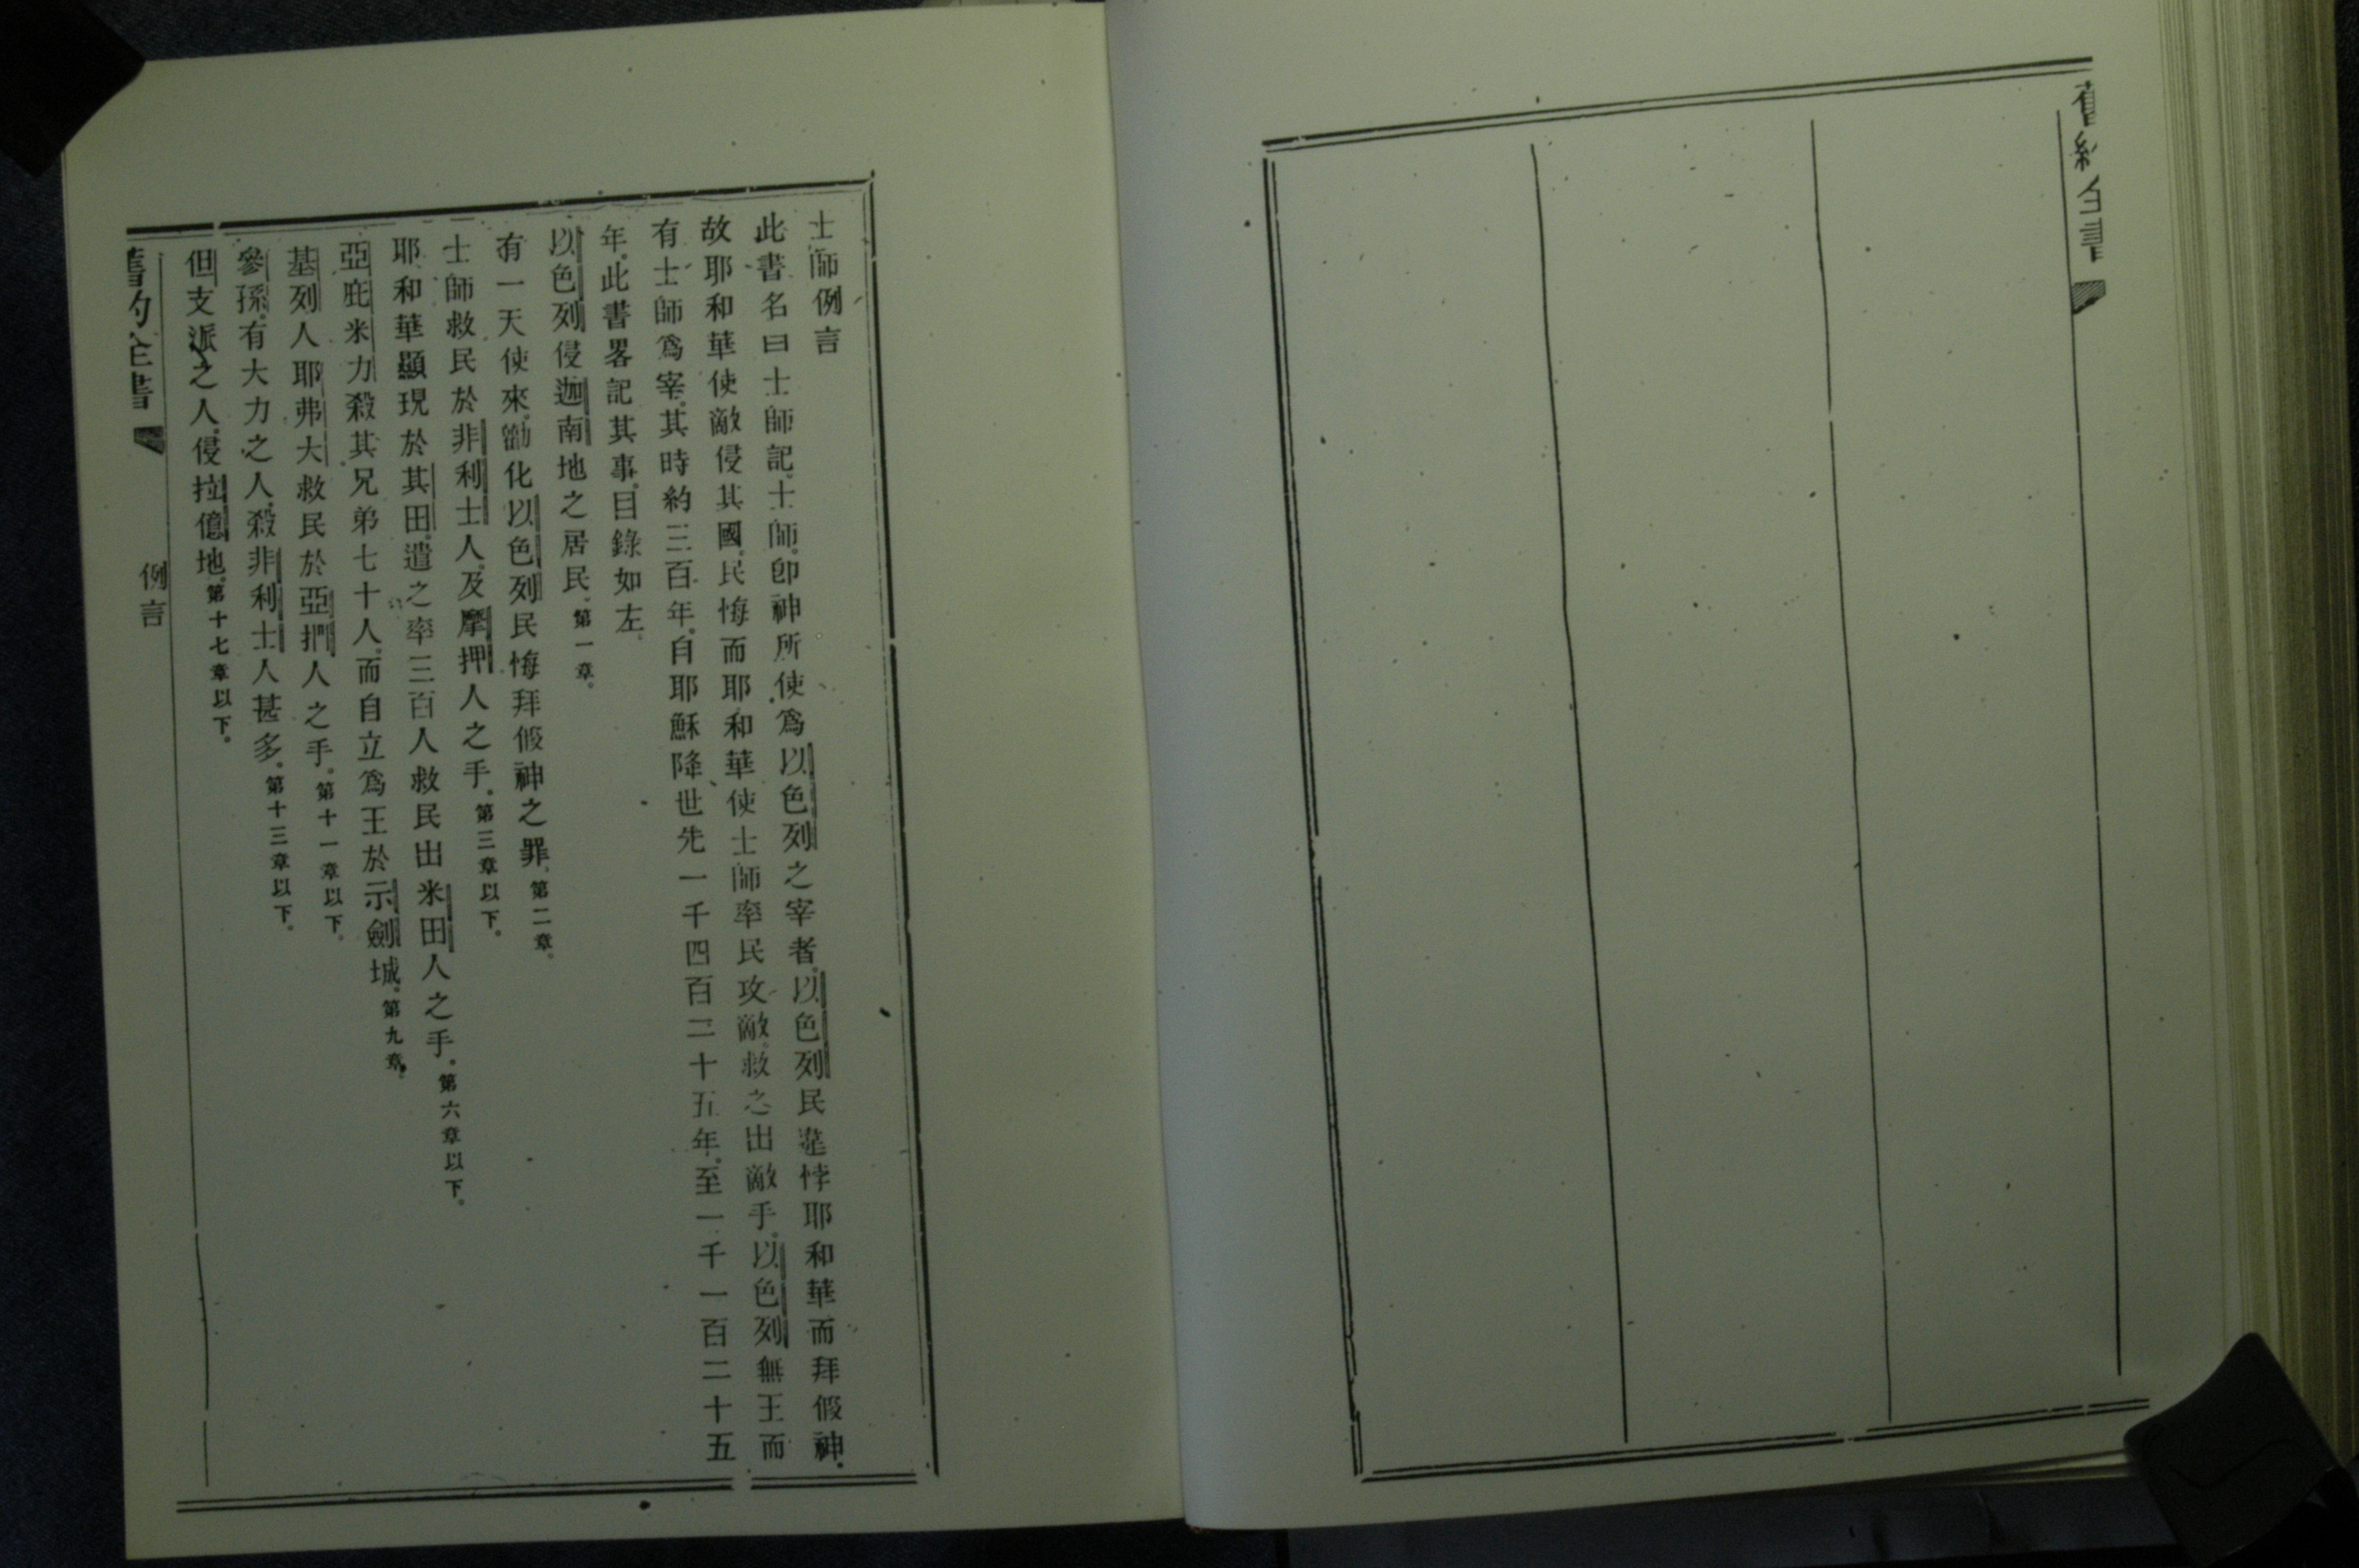 舊約全書
士師例言
此書名曰士師記。士師。卽神所使爲以色列之宰者。以色列民違悖耶和華而拜假神。
故耶和華使敵侵其國。民悔而耶和華使士師率民攻敵。救之出敵手。以色列無王而
有士師爲宰。其時約三百年。自耶穌降世先一千四百二十五年。至一千一百二十五
年。此書畧記其事。目錄如左。
以色列侵迦南地之居民。第一章。
有一天使來。勸化以色列民悔拜假神之罪。第二章。
士師救民於非利士人。及摩押人之手。第三章以下。
耶和華顯現於其田。遣之率三百人救民出米田人之手。第六章以下。
亞庇米力殺其兄弟七十人。而自立爲王於示劍城。第九章。
基列人耶弗大救民於亞捫人之手。第十一章以下。
參孫。有大力之人。殺非利士人甚多。第十三章以下。
但支派之人。侵拉億地。第十七章以下。
舊約全書 例言